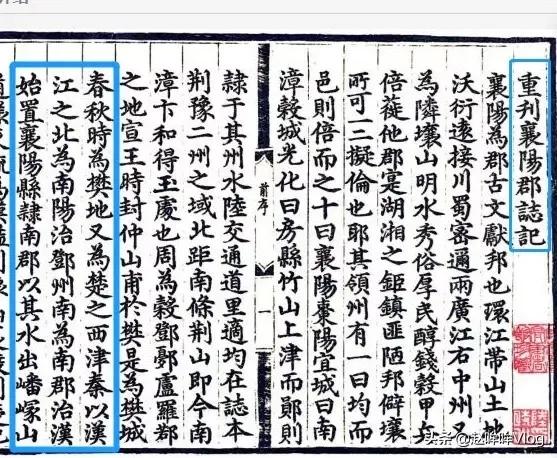 重刊襄陽郡誌記
襄陽為郡古文獻邦也環江帶山土地
沃衍遠接川蜀密邇兩廣江右中州又
為隣壤山明水秀俗厚民醇錢穀甲兵
倍蓰他郡寔湖湘之鉅鎮匪陋邦僻壤
所可三擬倫也耶其領州有一曰均而
邑則倍而之十曰襄陽棗陽宜城曰南
漳榖城光化曰房縣竹山上津而鄖則
前序 一
隷于其州水陸交通道里適均在誌本
荆豫二州之域北距南條荆山即今南
漳卞和得玉處也周為榖鄧鄾盧羅鄀
之地宣王時封仲山甫於樊是為樊城
春秋時為樊地又為楚之西津秦以漢
江之北為南陽治鄧州南為南郡治漢
始置襄陽縣隷南郡以其水出嶓冢山
头条 @赵晔晔Vlog